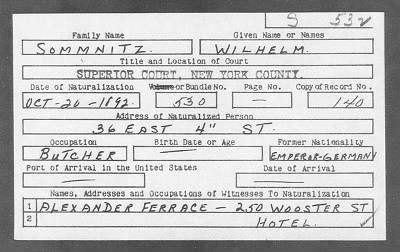 S 532
Family Name Given Name or Names
SOMMNITZ. WILHELM.
Title and Location of Court
SUPERIOR COURT, NEW YORK COUNTY.
Date of Naturalization Volume or Bundle No. Page No. Copy of Record No.
OCT-20-1892. 530 — 140
Address of Naturalized Person
36 EAST 4" ST.
Occupation Birth Date or Age Former Nationality
BUTCHER — EMPEROR-GERMANY
Port of Arrival in the United States Date of Arrival
— —
Names, Addresses and Occupations of Witnesses To Naturalization
1 ALEXANDER FERRACE — 250 WOOSTER ST
2 HOTEL.